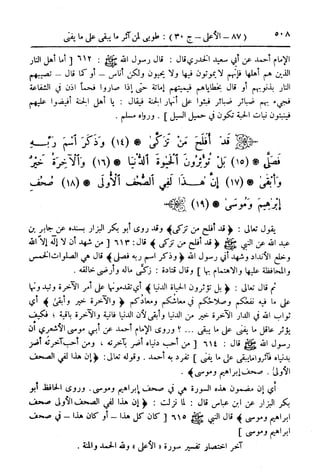 ٥٠٨ (٨٧ – الأعلى – ج ٣٠) : طوبى لمن آثر ما يبقى على ما يفنى
الإمام أحمد عن أبي سعيد الخدري قال : قال رسول الله ﷺ : ٦١٢ [ أما أهل النار
الذين هم أهلها فإنهم لا يموتون فيها ولا يحيون ولكن أناس – أو كما قال – تصيبهم
النار بذنوبهم أو قال بخطاياهم فيميتهم إماتة حتى إذا صاروا فحماً أذن في الشفاعة
فجيء بهم ضبائر ضبائر فبثوا على أنهار الجنة فيقال : يا أهل الجنة أفيضوا عليهم
فينبتون نبات الحبة تكون في حميل السيل ] . ورواه مسلم .
﴿ قد أفلح من تزكى * (١٤) وذكر اسم ربه
فصلى * (١٥) بل تؤثرون الحيوة الدنيا * (١٦) والآخرة خير
وأبقى * (١٧) إن هذا لفي الصحف الأولى * (١٨) صحف
إبرهيم وموسى * (١٩) ﴾
يقول تعالى : ﴿ قد أفلح من تزكى ﴾ وقد روى أبو بكر البزار بسنده عن جابر بن
عبد الله عن النبي ﷺ ﴿ قد أفلح من تزكى ﴾ قال : ٦١٣ [ من شهد أن لا إله إلا الله
وخلع الأنداد وشهد أني رسول الله ﴿ وذكر اسم ربه فصلى ﴾ قال هي الصلوات الخمس
والمحافظة عليها والاهتمام بها ] وقال قتادة : زكى ماله وأرضى خالقه .
ثم قال تعالى : ﴿ بل تؤثرون الحياة الدنيا ﴾ أي تقدمونها على أمر الآخرة وتبدونها
على ما فيه نفعكم وصلاحكم في معاشكم ومعادكم ﴿ والآخرة خير وأبقى ﴾ أي
ثواب الله في الدار الآخرة خير من الدنيا وأبقى لأن الدنيا فانية والآخرة باقية ؛ فكيف
يؤثر عاقل ما يفنى على ما يبقى ... ؟ وروى الإمام أحمد عن أبي موسى الأشعري أن
رسول الله ﷺ قال : ٦١٤ [ من أحب دنياه أضر بآخرته ، ومن أحب آخرته أضر
بدنياه فآثروا ما يبقى على ما يفنى ] تفرد به أحمد . وقوله تعالى : ﴿ إن هذا لفي الصحف
الأولى . صحف إبراهيم وموسى ﴾ .
أي إن مضمون هذه السورة هي في صحف إبراهيم وموسى . وروى الحافظ أبو
بكر البزار عن ابن عباس قال : لما نزلت : ﴿ إن هذا لفي الصحف الأولى صحف
ابراهيم وموسى ﴾ قال النبي ﷺ ٦١٥ [ كان كل هذا – أو كان هذا – في صحف
ابراهيم وموسى ]
آخر اختصار تفسير سورة « الأعلى » ولله الحمد والمنة .